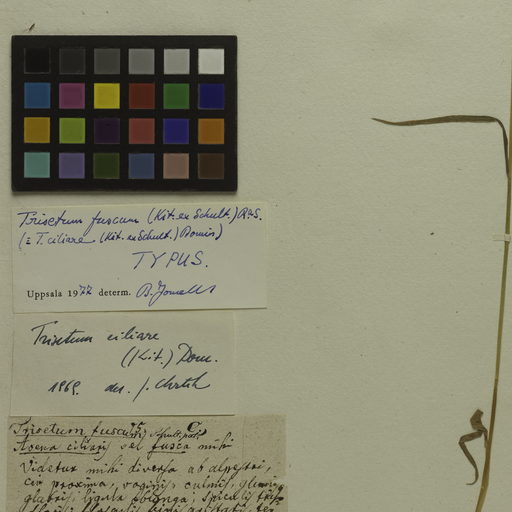 Trisetum fuscum (Kit. ex Schult.) R&S.
(= T. ciliare (Kit. ex Schult.) Domin)
TYPUS.
Uppsala 1977 determ. B. Jonsell
Trisetum ciliare
(Kit.) Dom.
1969. det. J. Chrtek
Trisetum fuscum Schult.
Avena ciliaris vel fusca mihi
Videtur mihi diversa ab alpestri,
cui proxima, vaginis, culmis, glumis
glabris, ligula oblonga, spiculis